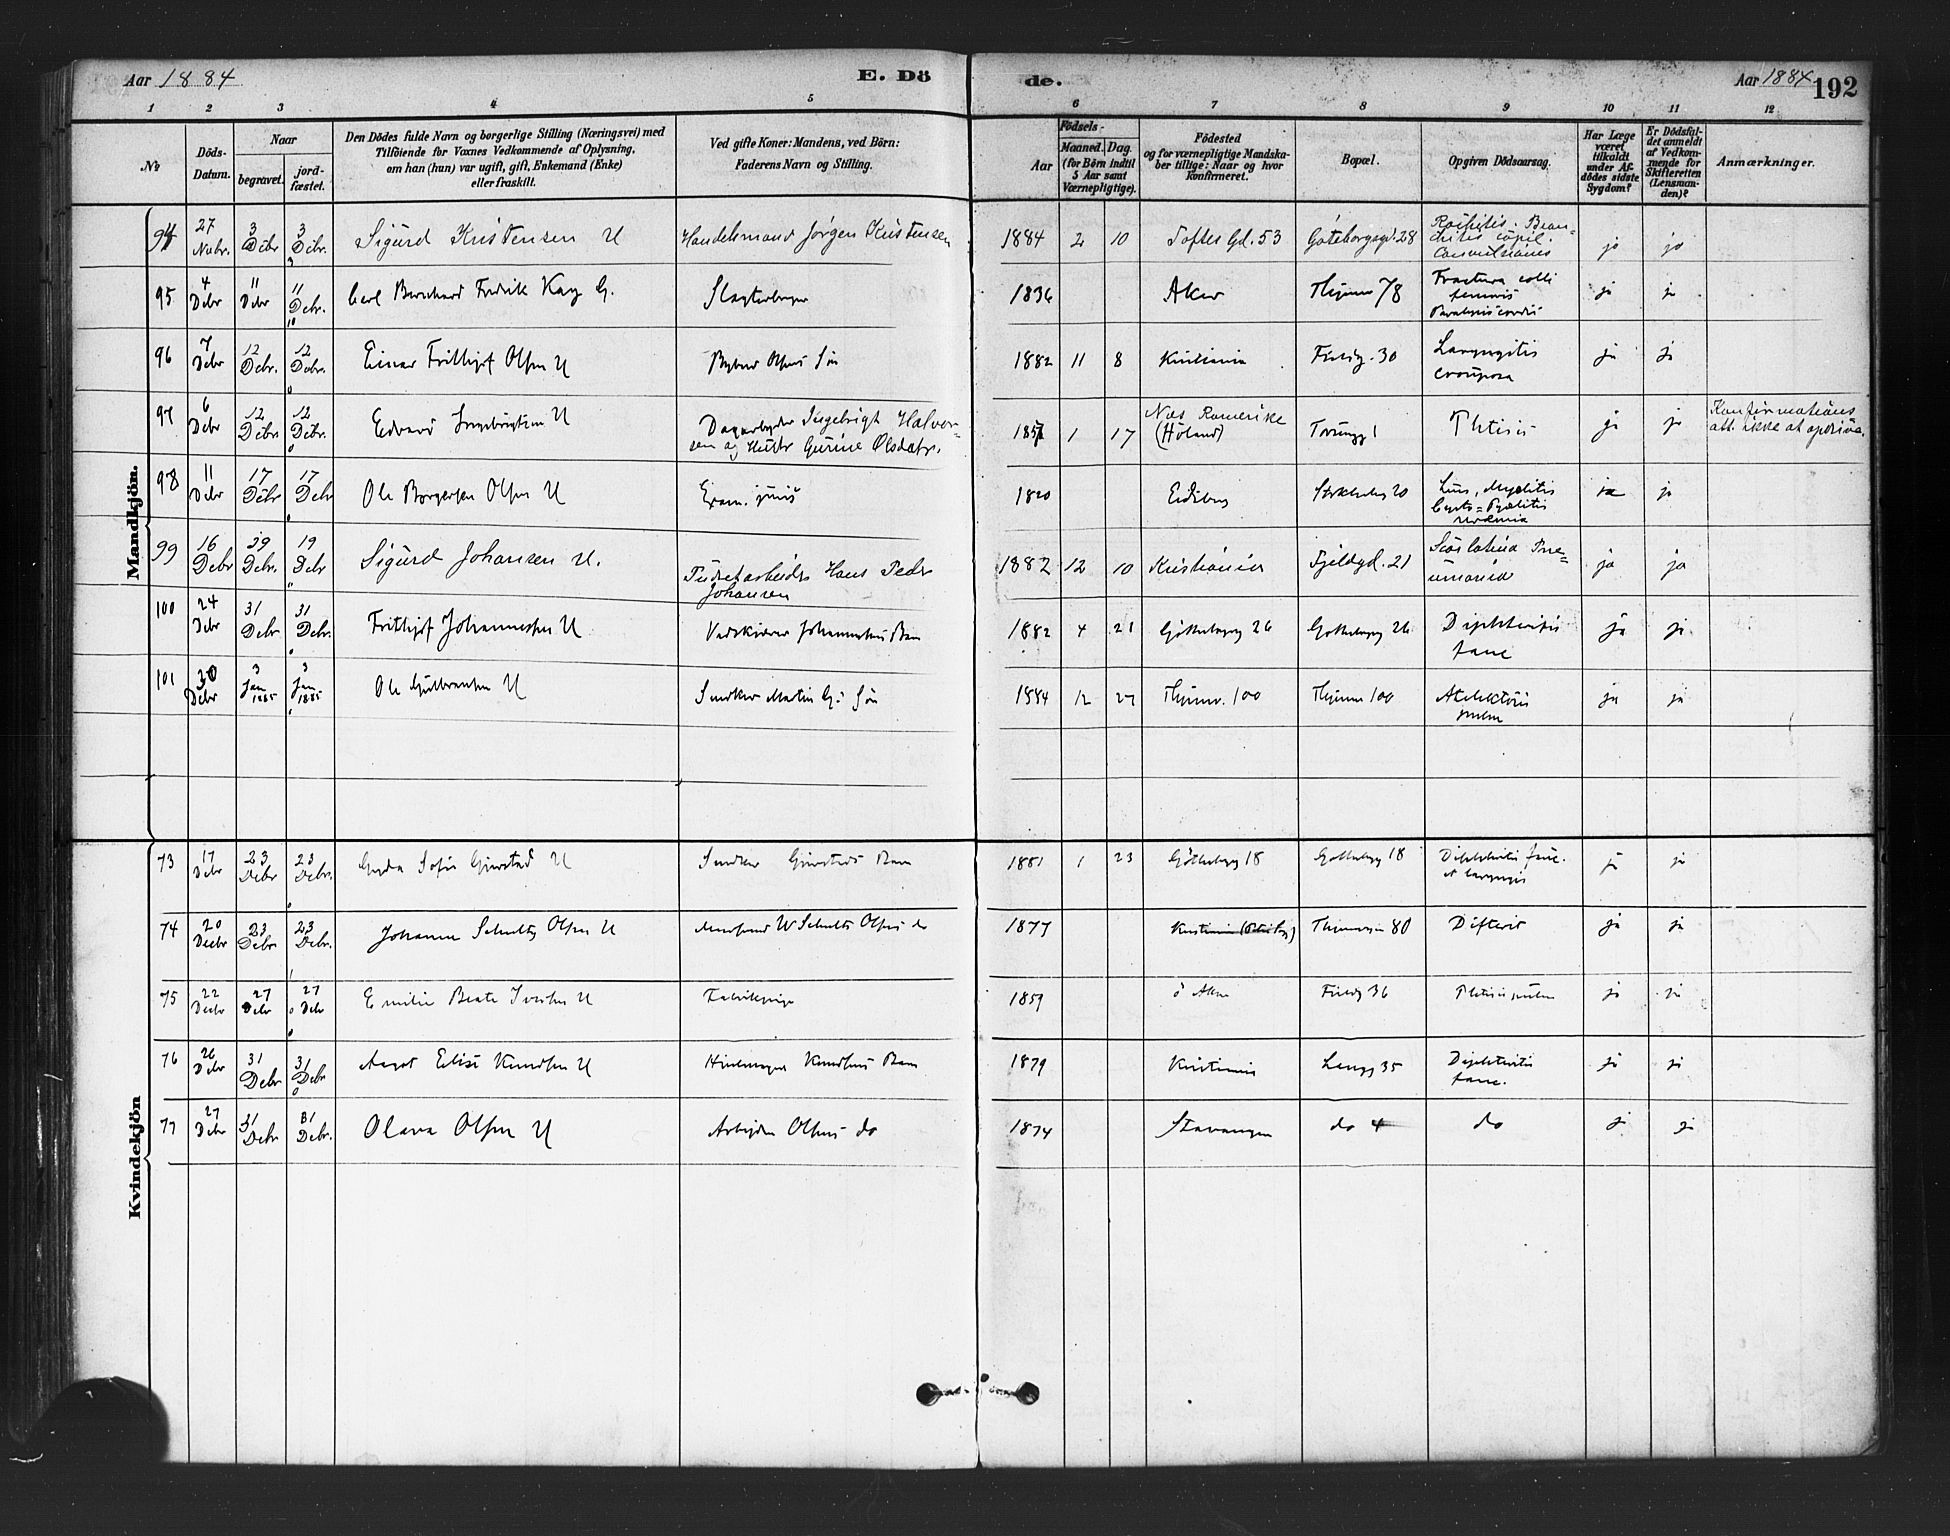 Aar 1884
E. Dö
de.
Aar 1884
192
1 2 3 4 5 6 7 8 9 10 11 12
No
Döds-Datum.
Naar
begravet.
jord-fæstet.
Den Dödes fulde Navn og borgerlige Stilling (Næringsvei) med
Tilföiende for Voxnes Vedkommende af Oplysning,
om han (hun) var ugift, gift, Enkemand (Enke)
eller fraskilt.
Ved gifte Koner: Mandens, ved Börn:
Faderens Navn og Stilling.
Födsels-
Aar
Maaned. Dag.
(for Börn indtil
5 Aar samt
Værnepligtige).
Födested
og for værnepligtige Mandska-
ber tillige: Naar og hvor
Konfirmeret.
Bopæl.
Opgiven Dödsaarsag.
Har Læge
været
tilkaldt
under Af-
dödes sidste
Sygdom?
Er Dödsfal-
det anmeldt
af Vedkom-
mende for
Skifteretten
(Lensman-
den)?
Anmærkninger.
Mandkjön.
94 27 Nvbr. 3 Debr 3 Debr. Sigurd Kristensen U Handelsmand Jörgen Kristensen 1884 2 10 Toftes Gd. 53 Göteborgsgd. 28 jo jo
95 4 Debr 11 Debr 11 Debr. Carl Bernhard Fredrik Kay G. Slagterborger 1836 Aker Thjemsv 78 Fractura colli femoris ja ja
96 7 Debr 12 Debr. 12 Debr. Einar Frithjof Olsen U Olsens Sön 1882 11 8 Kristiania 30 Laryngitis crouposa ja ja
97 6 Debr 12 Debr. 12 Debr. Edvard Ingebrigtsen U Dagarbeider Ingebrigt Halvor-
sen og Hustr Gurine Olsdatr. 1 17 Næs Romerike
(Höland) 1 Phtisis ja ja Konfirmations
att. ikke at opdrive.
98 11 Debr 17 Debr 17 Debr Ole Borgersen Olsen U Exam. juris 1820 Eidsberg 20 ja ja
99 16 Debr 19 Debr. 19 Debr Sigurd Johansen U. Hans Peder
Johansen 1882 12 10 Kristiania Fjeldgd. 21 Scarlatina Pne-
umonia ja ja
100 24 Debr 31 Debr. 31 Debr. Frithjof Johannessen U Vedskjærer Johannessens Barn 1882 4 21 Götheborgg 26 Gotheborgg 26 Diphtheritis
fauc ja ja
101 30 Debr 3 Jan 1885 3 Jan 1885 Ole Gulbransen U Snedker Martin G's Sön 1884 12 27 Thjemsv. 100 Thjemsv 100 Atelektasis
pulm ja ja
Kvindekjön
73 17 Debr 23 Debr 23 Debr. Gyda Sofie U Snedker Barn 1881 1 23 Götheborgg 18 Gotheborgg 18 Diphtheritis fauc.
et laryngis ja ja
74 20 Decbr 23 Debr. 23 Debr. Johanna Schultz Olsen U W Schultz Olsens do 1877 Kristiania 80 Difterit ja ja
75 22 Decbr 27 Debr 27 Debr Emilie Beate Iversen U Fabrikpige 1859 ö Aker 36 Phtisis pulm ja ja
76 26 Debr 31 Debr 31 Debr Aagot Elise Knudsen U Knudsens Barn 1879 Kristiania Langg 35 Diphtheritis
fauc. ja ja
77 27 Debr 31 Debr 31 Debr. Olava Olsen U Arbeider Olsens do 1874 Stavanger do 4 do ja ja